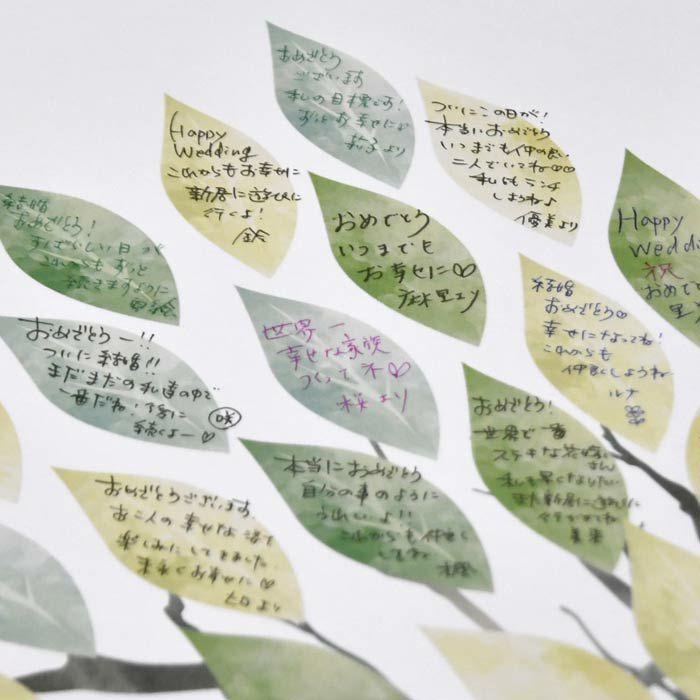 おめでとう
ございます
私の目標です!
ずっとお幸せに♡
莉子より
ついにこの日が!
本当におめでとう
いつまでも仲の良い
二人でいてね♡♡
私ともランチ
しようね
優美より
Happy
Wedding
これからもお幸せに
新居に遊びに
行くよ!
鈴
おめでとう
いつまでも
お幸せに♡
麻里より
Happy
Wedding
祝
おめで
結婚
おめでとう!
すばらしい日が
これからもずっと
続きますように
結婚
おめでとう♡
幸せになってね!
これからも
仲良くしようね
ルナ
世界一
幸せな家族
つくってネ♡
桜より
おめでとうー!!
ついに結婚!!
まだまだの私達の中で
一番だね!
続くよー♡
咲
おめでとう!
世界で一番
ステキな花嫁
さん
私も早くなりたい
また新居に
美来
本当におめでとう
自分の事のように
うれしいよ!!
これからも仲良く
してね
おめでとうございます。
お二人の幸せな姿を
楽しみにしてました。
末永くお幸せに♡
より